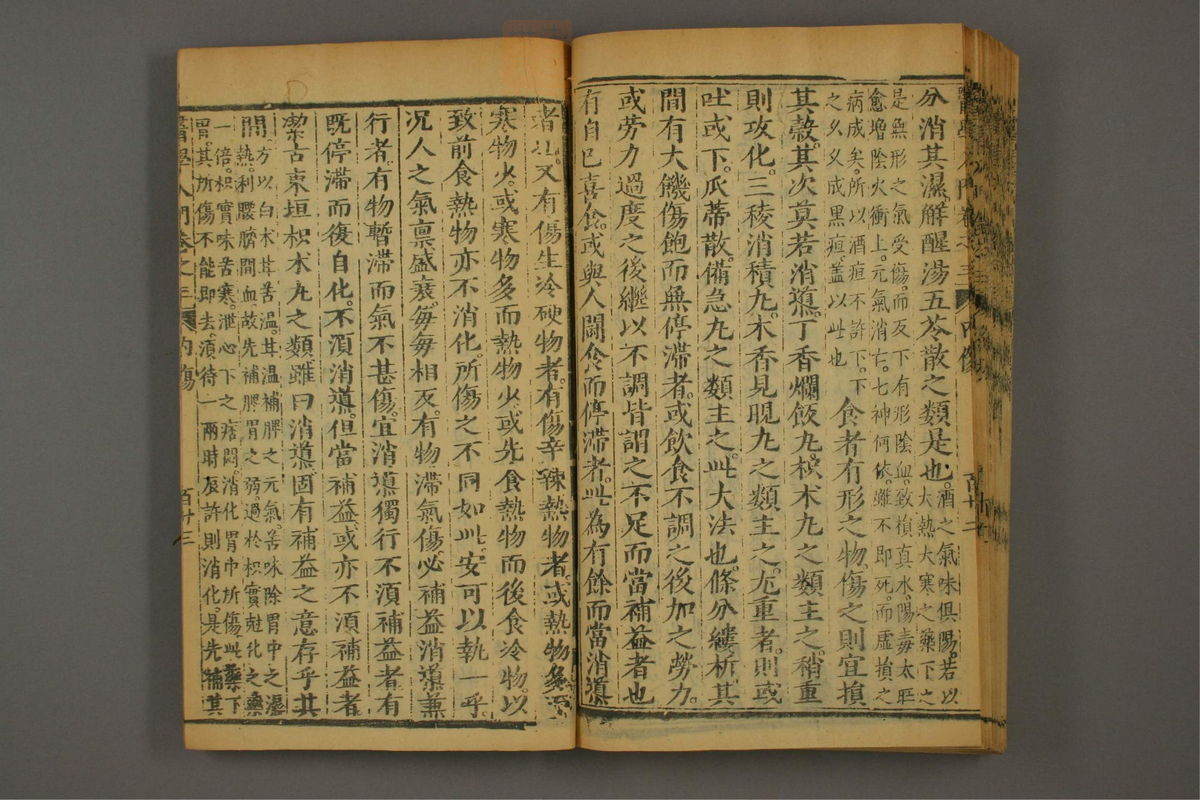 分消其濕解醒湯五苓散之類是也酒之氣味俱陽若以
大熱大寒之藥下之
是無形之氣受傷而反下有形陰血致損真水陽毒太旺
愈增陰火衝上元氣消亡七神何依雖不即死而虛損之
病成矣所以酒疸不許下下
之久久成黑疸蓋以此也
食者有形之物傷之則宜損
其穀其次莫若消導丁香爛飯丸枳朮丸之類主之稍重
則攻化三稜消積丸木香見睍丸之類主之尤重者則或
吐或下瓜蒂散備急丸之類主之此大法也條分縷析其
間有大饑傷飽而無停滯者或飲食不調之後加之勞力
或勞力過度之後繼以不調皆謂之不足而當補益者也
有自已喜食或與人鬭食而停滯者此為有餘而當消導
者也又有傷生冷硬物者有傷辛辣熱物者或熱物多而
寒物少或寒物多而熱物少或先食熱物而後食冷物以
致前食熱物亦不消化所傷之不同如此安可以執一乎
况人之氣禀盛衰每每相反有物滯氣傷必補益消導兼
行者有物暫滯而氣不甚傷宜消導獨行不須補益者有
既停滯而復自化不須消導但當補益或亦不須補益者
潔古東垣枳朮丸之類雖曰消導固有補益之意存乎其
間方以白朮苷苦溫苷溫補脾之元氣苦味除胃中之濕
熱利腰臍間血故先補脾胃之弱過於枳實尅化之藥
一倍枳實味苦寒泄心下之痞悶消化胃中所傷此藥下
胃其所傷不能即去須待一兩時辰許則消化是先補其
醫學入門卷之三
內傷
百廿三
內傷
百廿二